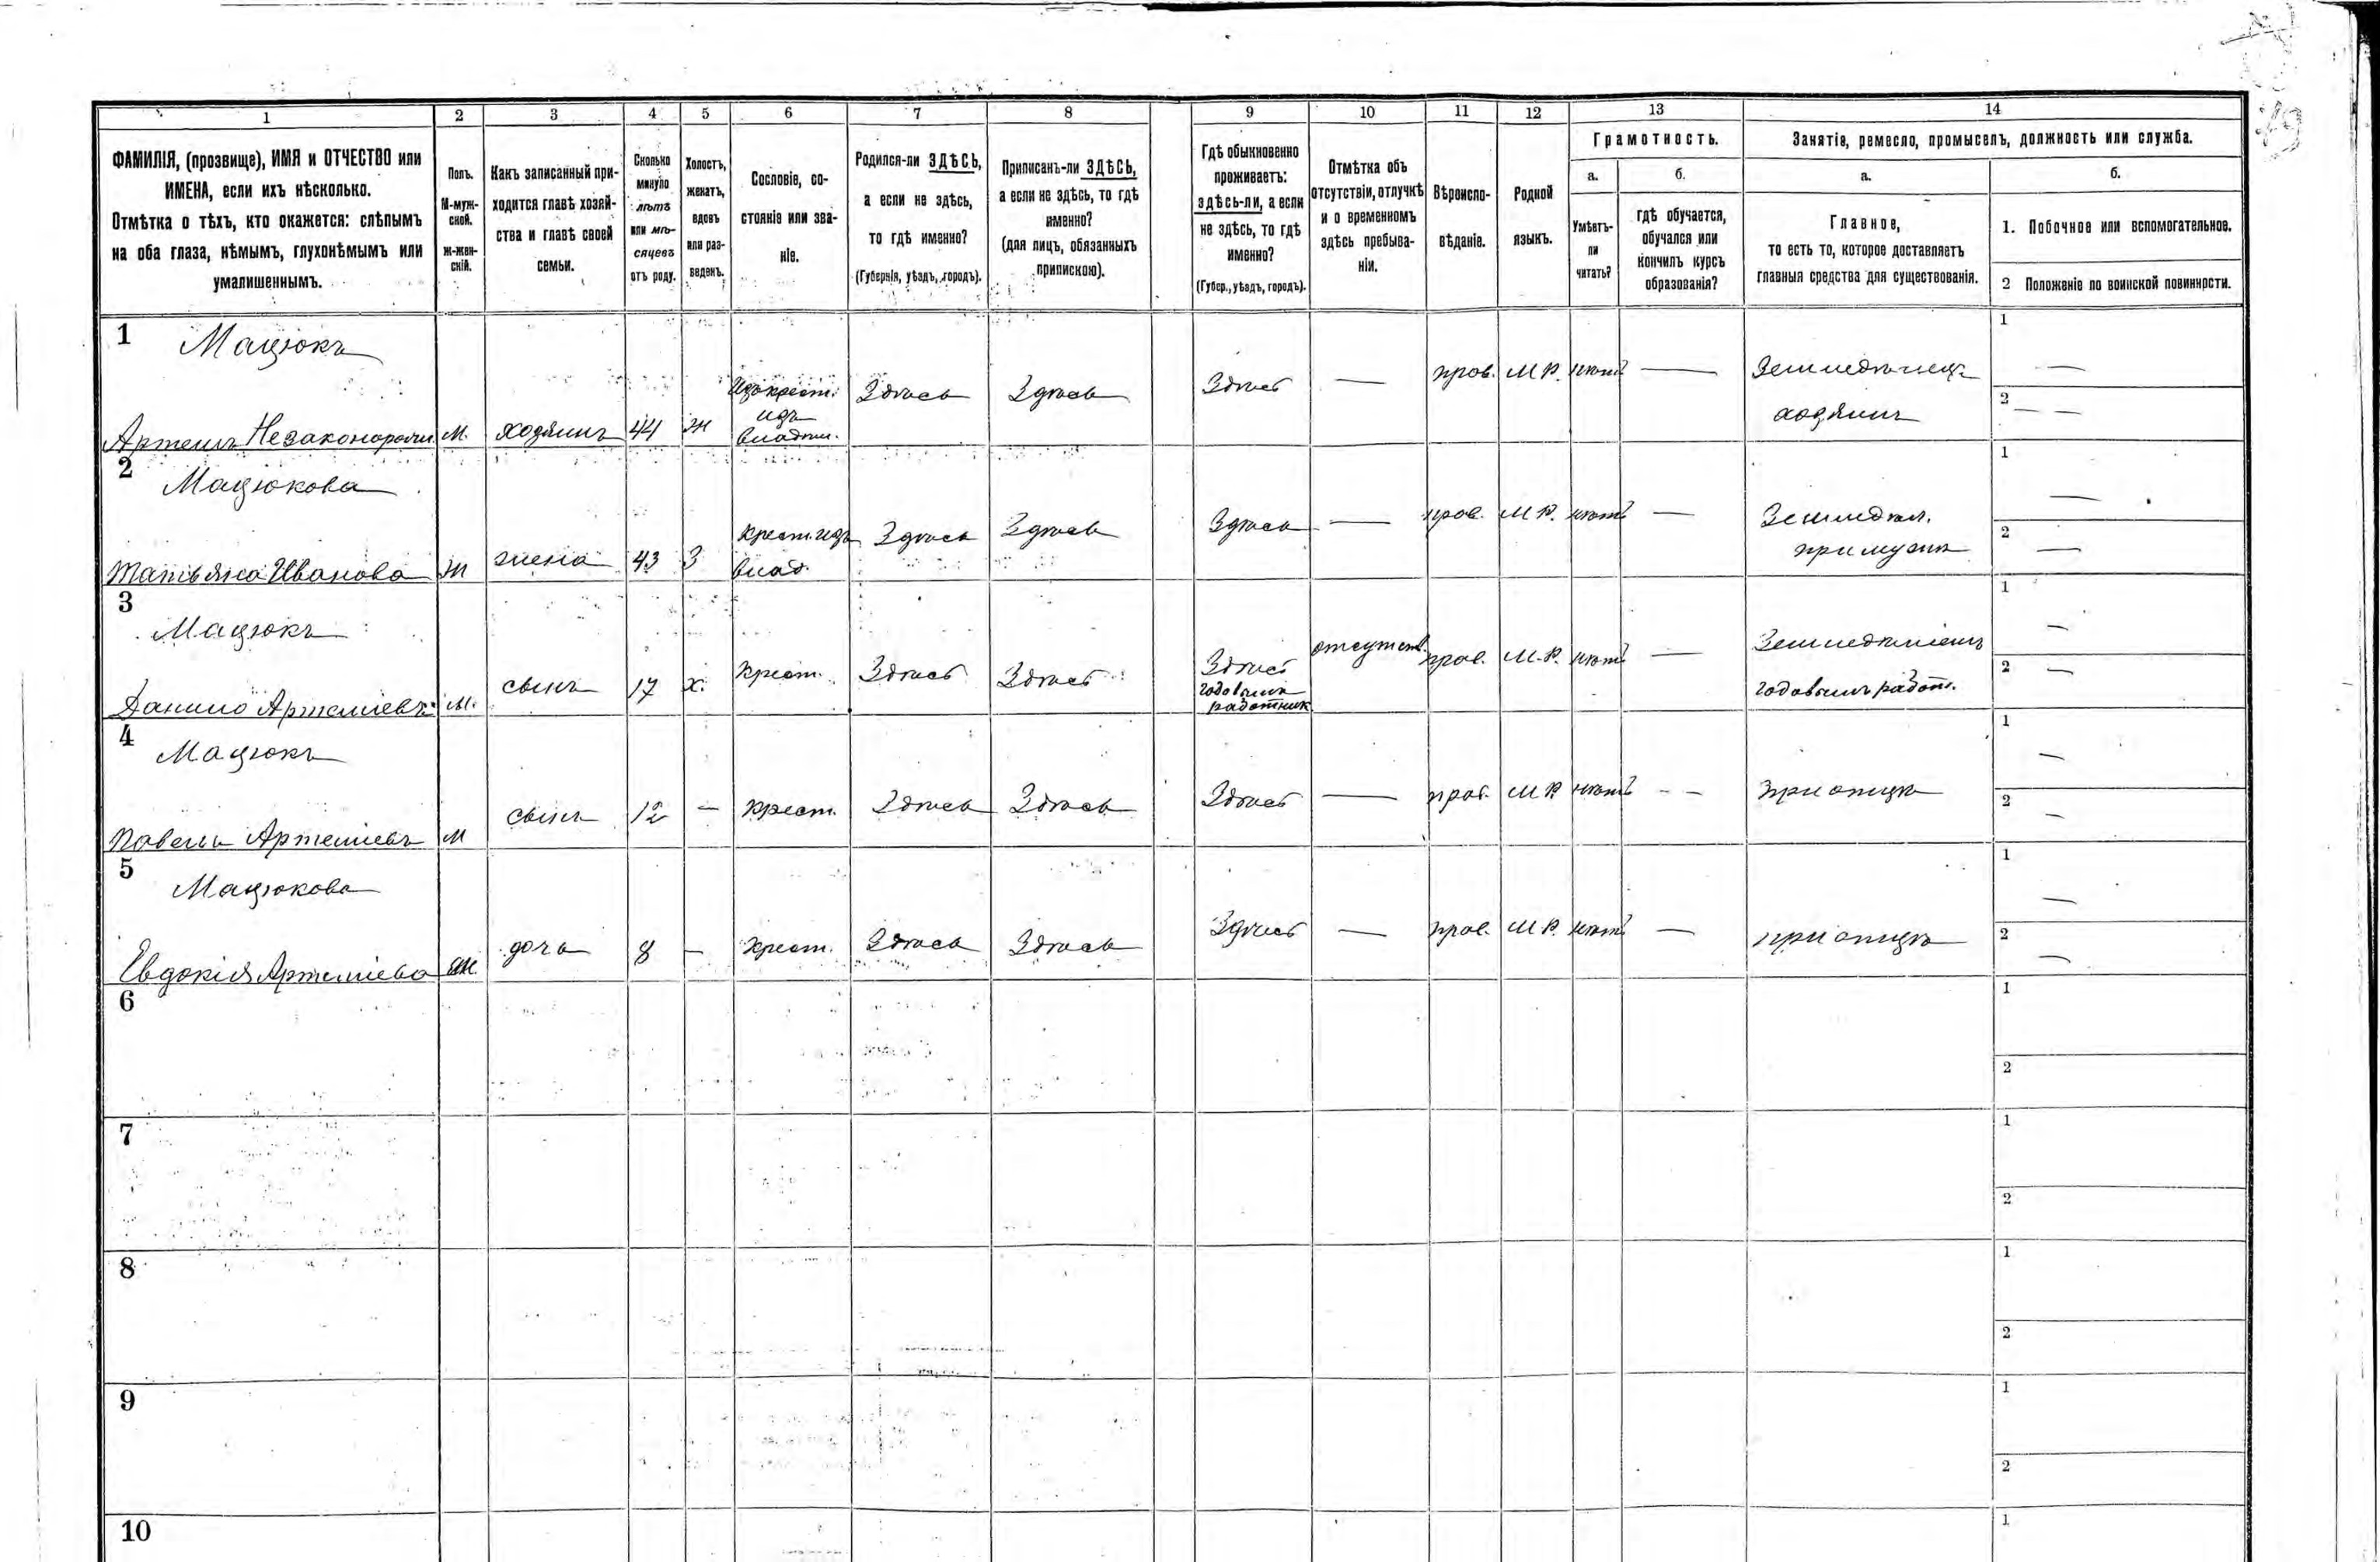 1 2 3 4 5 6 7 8 9 10 11 12 13 14
ФАМИЛІЯ, (прозвище), ИМЯ и ОТЧЕСТВО или
ИМЕНА, если ихъ нѣсколько.
Отмѣтка о тѣхъ, кто окажется: слѣпымъ
на оба глаза, нѣмымъ, глухонѣмымъ или
умалишеннымъ.
Полъ.
М-муж-
ской.
Ж-жен-
скій.
Какъ записанный при-
ходится главѣ хозяй-
ства и главѣ своей
семьи.
Сколько
минуло
лѣтъ
или мѣ-
сяцевъ
отъ роду.
Холостъ,
женатъ,
вдовъ
или раз-
веденъ.
Сословіе, со-
стояніе или зва-
ніе.
Родился-ли ЗДѢСЬ,
а если не здѣсь,
то гдѣ именно?
(Губернія, уѣздъ, городъ).
Приписанъ-ли ЗДѢСЬ,
а если не здѣсь, то гдѣ
именно?
(для лицъ, обязанныхъ
припискою).
Гдѣ обыкновенно
проживаетъ:
здѣсь-ли, а если
не здѣсь, то гдѣ
именно?
(Губер., уѣздъ, городъ).
Отмѣтка объ
отсутствіи, отлучкѣ
и о временномъ
здѣсь пребыва-
ніи.
Вѣроиспо-
вѣданіе.
Родной
языкъ.
Грамотность.
а.
Умѣетъ-
ли
читать?
б.
гдѣ обучается,
обучался или
кончилъ курсъ
образованія?
Занятіе, ремесло, промыселъ, должность или служба.
а.
Главное,
то есть то, которое доставляетъ
главныя средства для существованія.
б.
1. Побочное или вспомогательное.
2 Положеніе по воинской повинности.
1 Мацюкъ
Артемъ Незаконорожд. М. хозяинъ 44 ж
Изъ крест.
изъ
владѣл.
Здѣсь Здѣсь Здѣсь — пров. М.Р. нѣтъ —
Земледѣлецъ
хозяинъ
1 —
2 — —
2 Мацюкова
Татьяна Иванова Ж жена 43 З
Крест. изъ
влад.
Здѣсь Здѣсь Здѣсь — пров. М.Р. нѣтъ —
Земледѣл.
при мужѣ
1 —
2 —
3 Мацюкъ
Данило Артеміевъ М. сынъ 17 х. Крест. Здѣсь Здѣсь
Здѣсь
годовымъ
работник
отсутств. прав. М.Р. нѣтъ —
Земледѣліемъ
годовымъ работ.
1 —
2 —
4 Мацюкъ
Павелъ Артеміевъ М сынъ 12 — Крест. Здѣсь Здѣсь Здѣсь — прав. М.Р. нѣтъ — —
при отцѣ
1 —
2 —
5 Мацюкова
Евдокія Артеміева Ж. дочь 8 — Крест. Здѣсь Здѣсь Здѣсь — прав. М.Р. нѣтъ —
при отцѣ
1 —
2 —
6
1
2
7
1
2
8
1
2
9
1
2
10
1